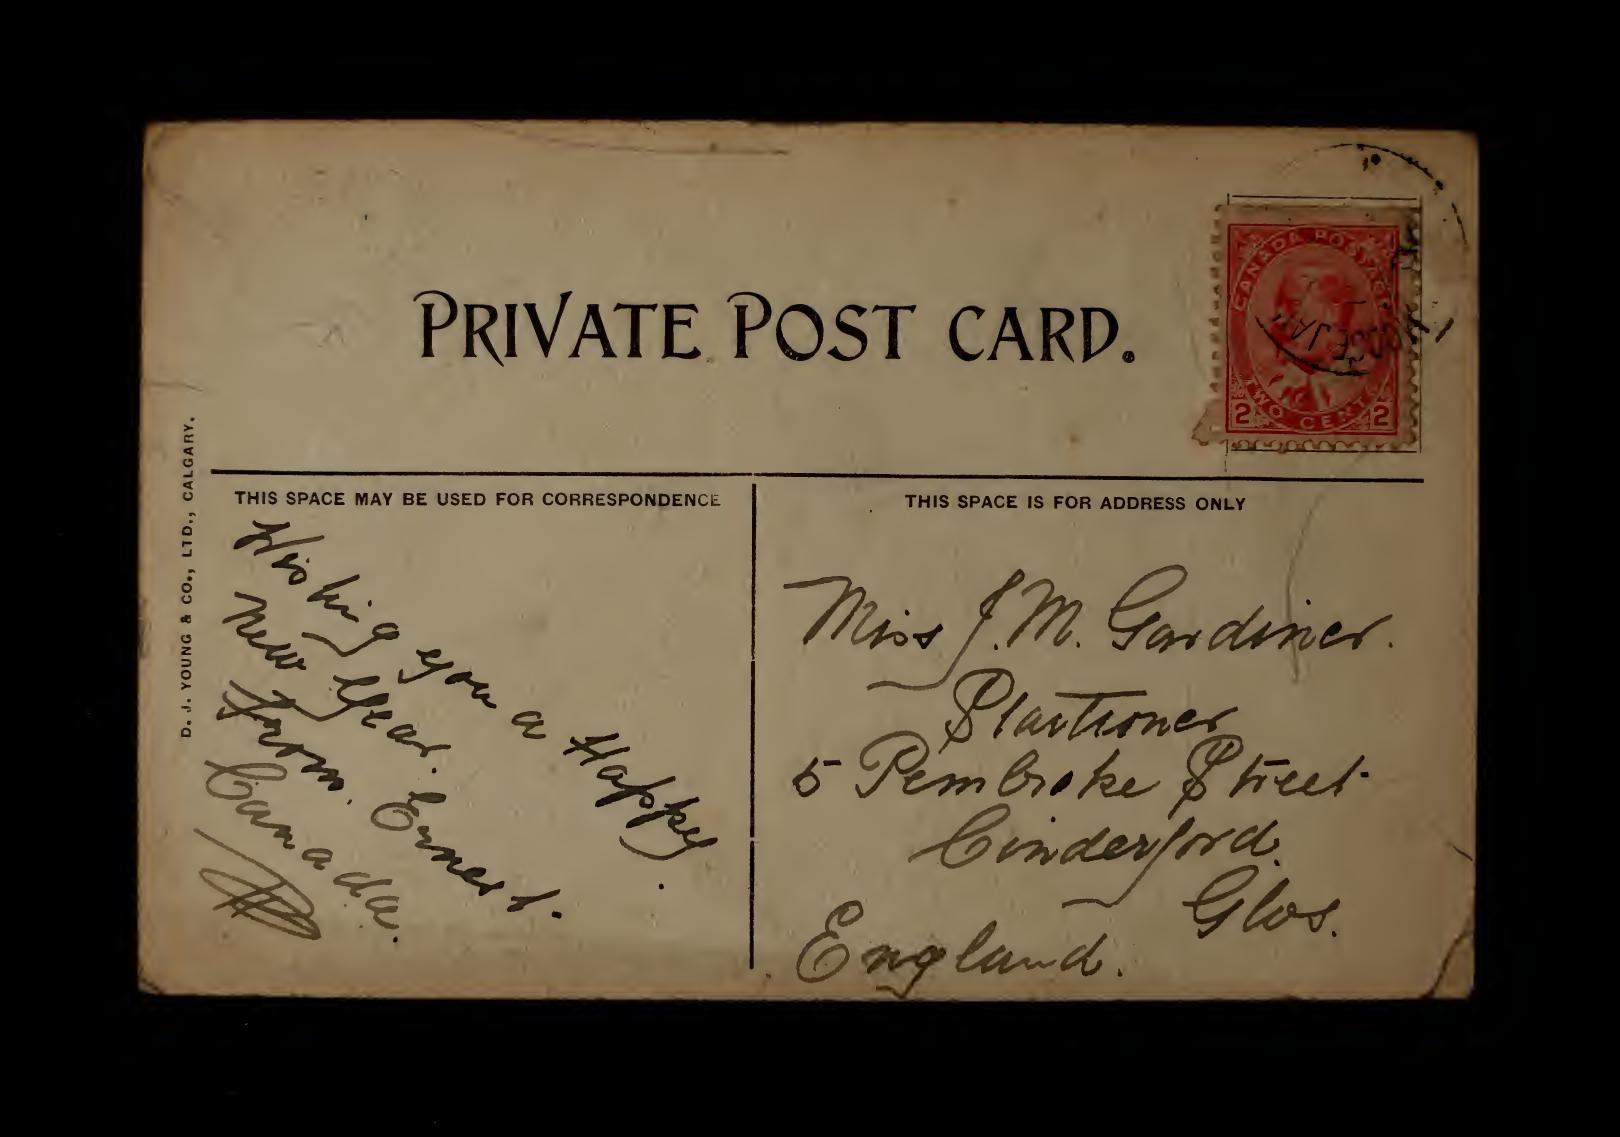 PRIVATE POST CARD.
CANADA POSTAGE
2 TWO CENTS 2
OSE JAW
D. J. YOUNG & CO., LTD., CALGARY.
THIS SPACE MAY BE USED FOR CORRESPONDENCE
Wishing you a Happy
New Year.
From. Ernest.
Canada.
THIS SPACE IS FOR ADDRESS ONLY
Miss J. M. Gardiner.
Stationer
5 Pembroke Street
Cinderford.
Glos.
England.